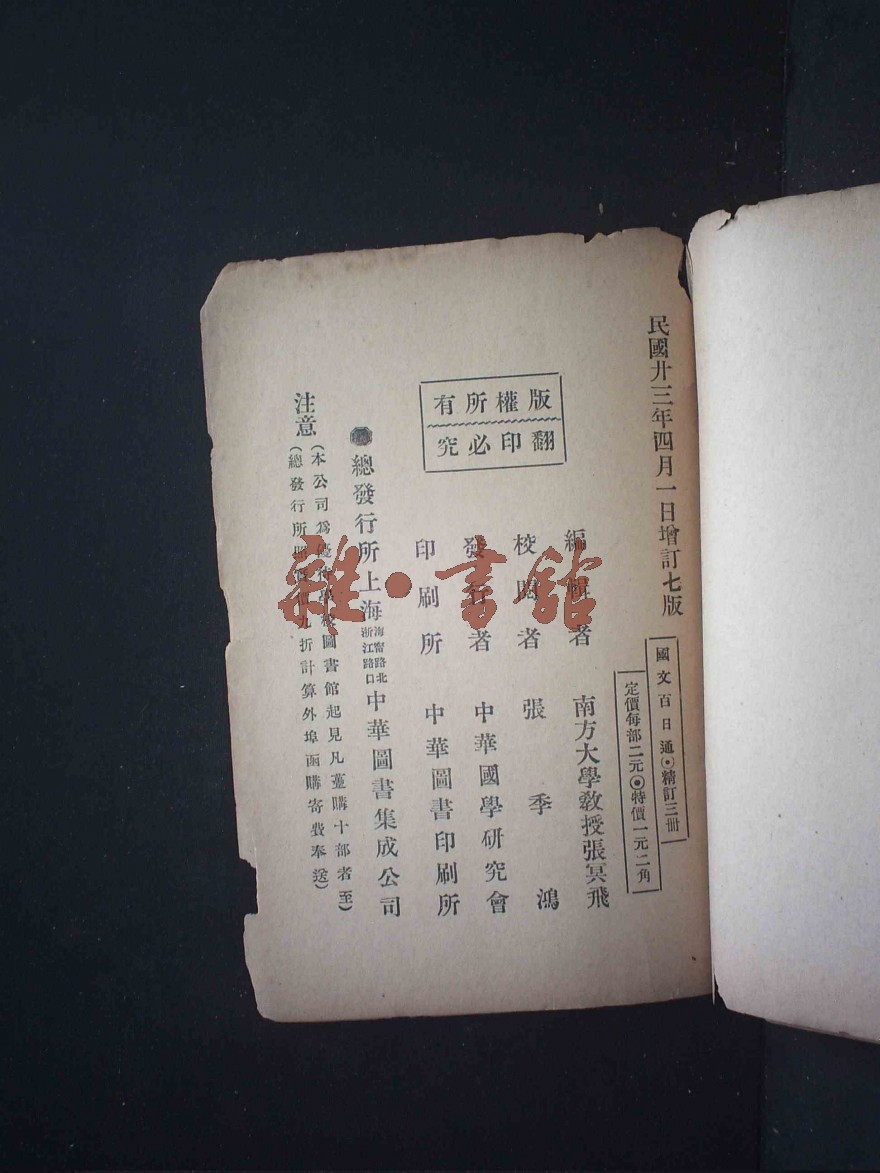 民國廿三年四月一日增訂七版
國文百日通◎精訂三冊
定價每部二元◎特價一元二角
版權所有
翻印必究
編輯者 南方大學敎授張冥飛
校閱者 張季鴻
發行者 中華國學硏究會
印刷所 中華圖書印刷所
總發行所上海海甯路北浙江路口中華圖書集成公司
注意
(本公司爲優待學校圖書館起見凡躉購十部者至)
(總發行所照特價九折計算外埠函購寄費奉送)
雜·書館